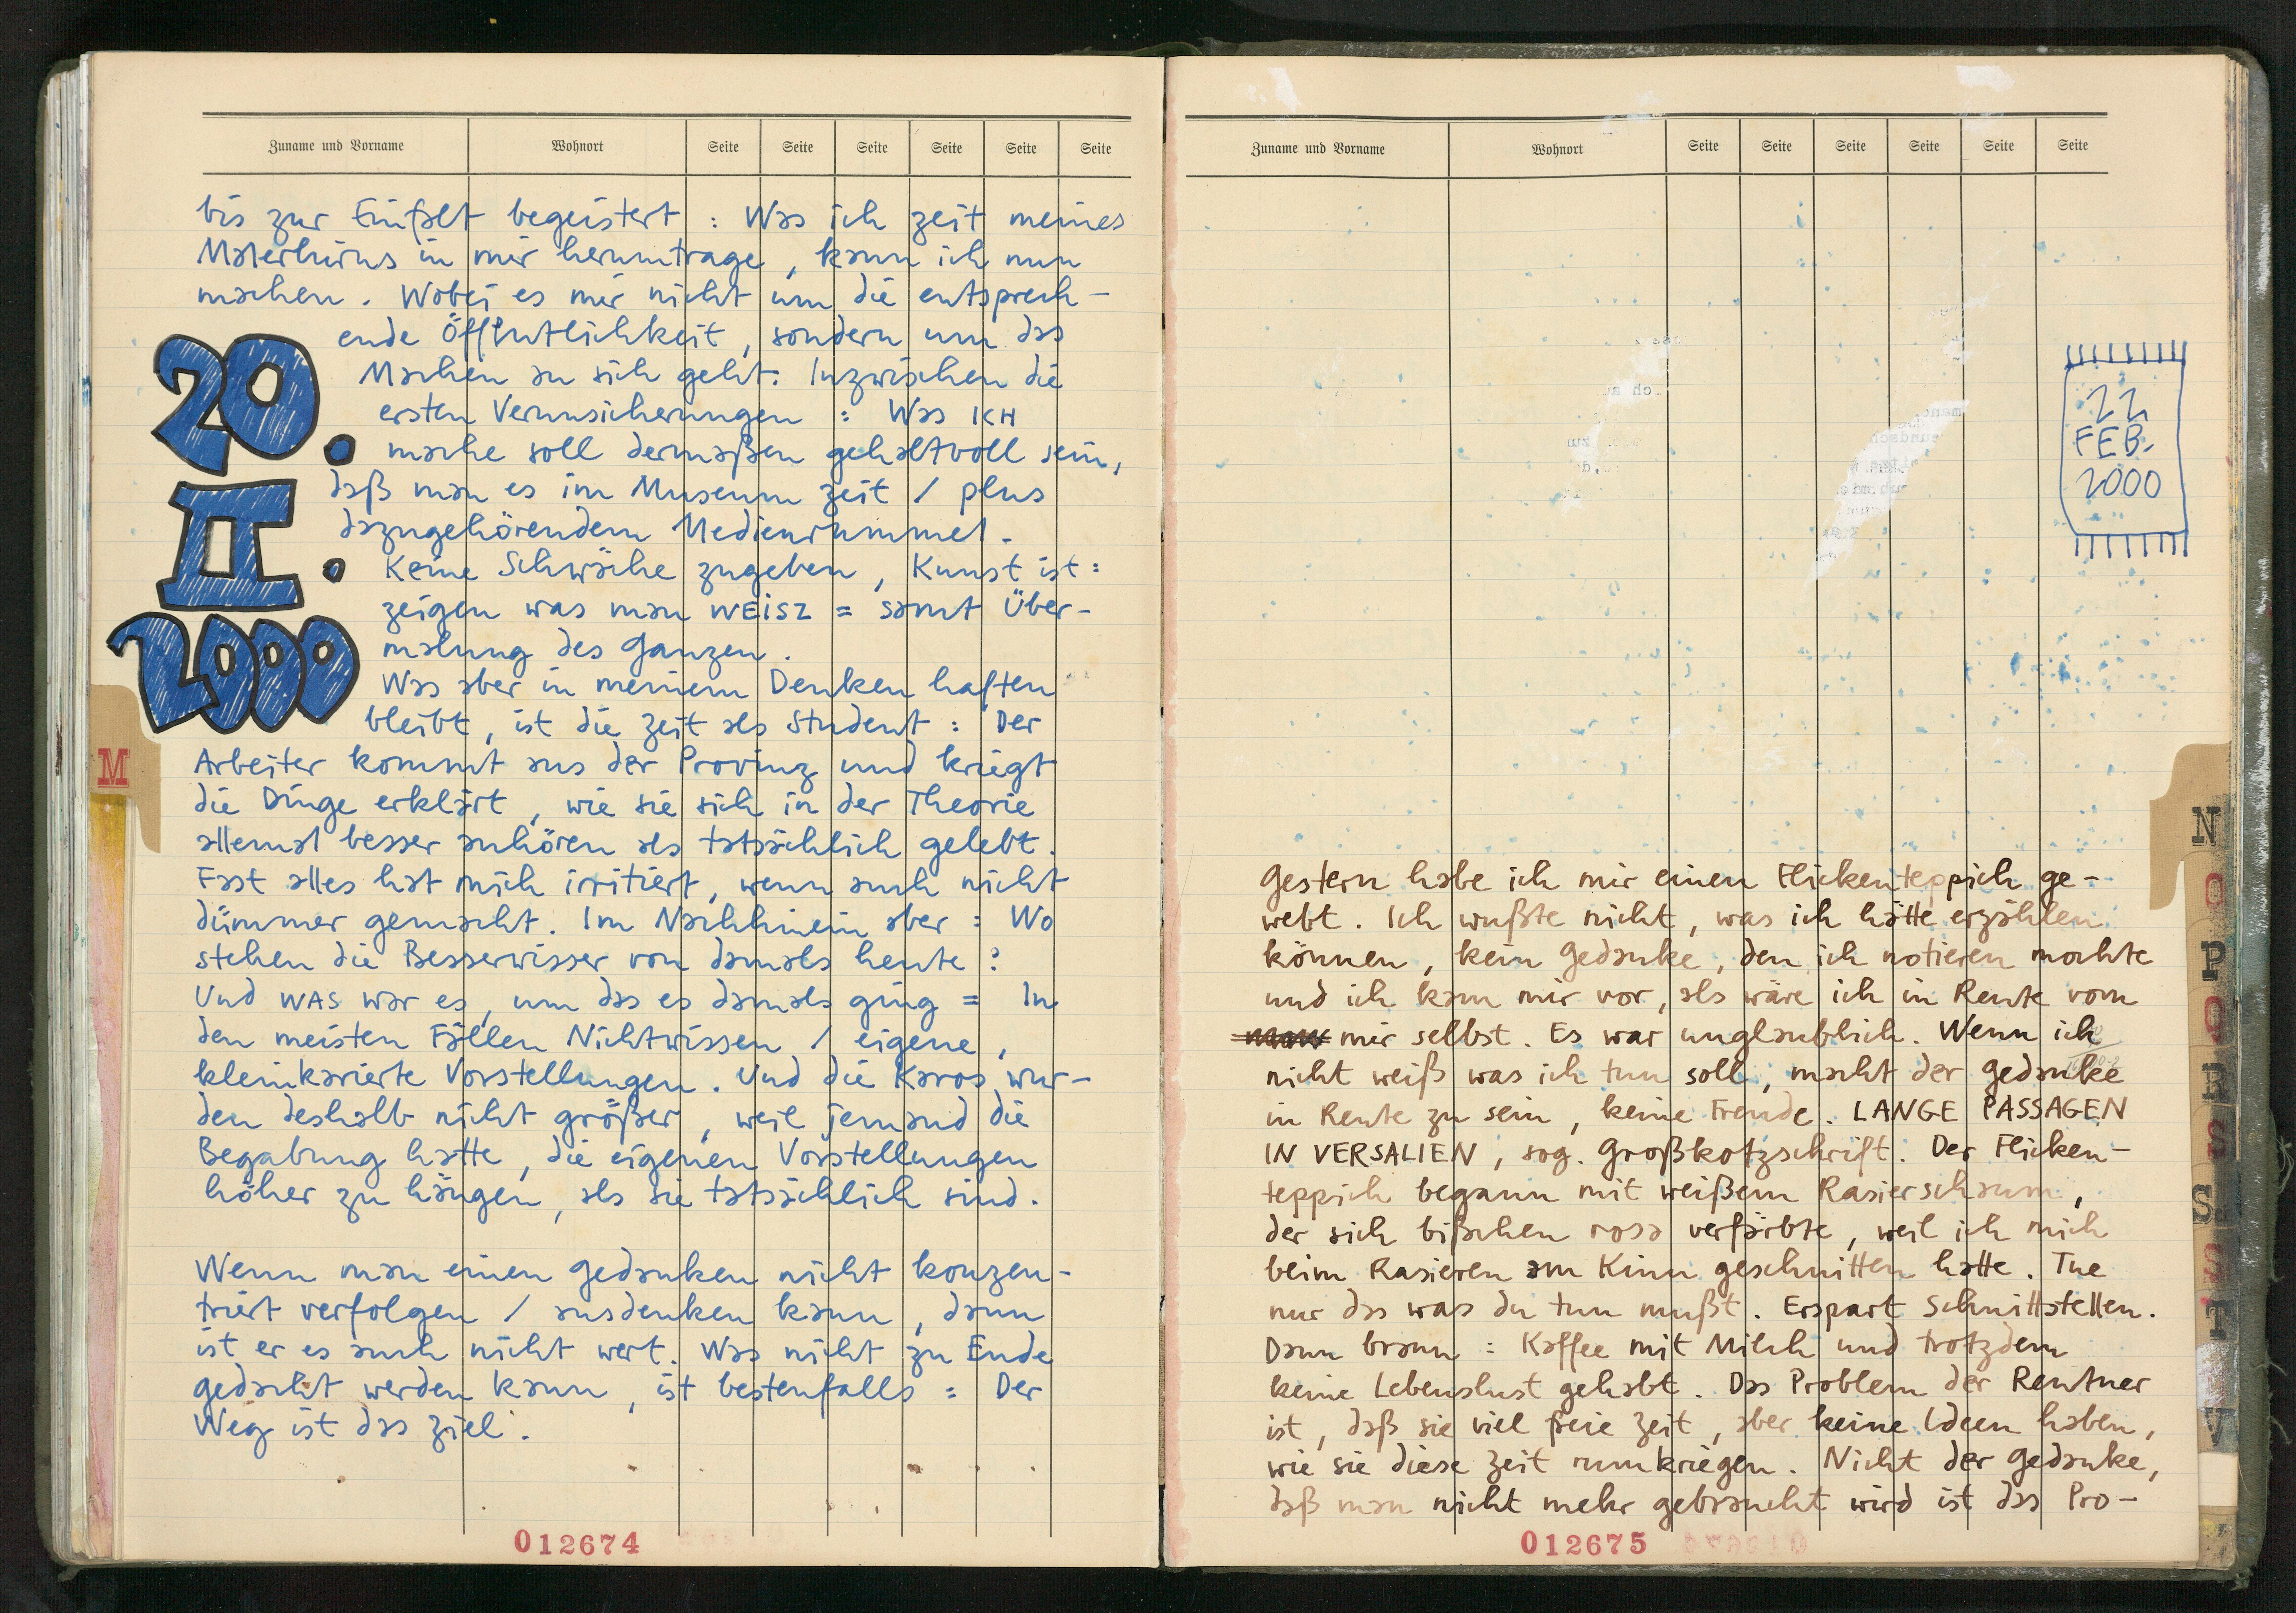 Zuname und Vorname Wohnort Seite Seite Seite Seite Seite Seite
bis zur Einfalt begeistert : Was ich zeit meines
Malerhirns in mir herumtrage , kann ich nun
machen . Wobei es mir nicht um die entsprech-
ende Öffentlichkeit , sondern um das
Machen an sich geht. Inzwischen die
ersten Verunsicherungen : Was ICH
mache soll dermaßen gehaltvoll sein,
daß man es im Museum zeit / plus
dazugehörendem Medienrummel.
Keine Schwäche zugeben , Kunst ist :
zeigen was man WEISZ = samt Über-
malung des Ganzen .
Was aber in meinem Denken haften
bleibt , ist die Zeit als Student : Der
Arbeiter kommt aus der Provinz und kriegt
die Dinge erklärt , wie sie sich in der Theorie
allemal besser anhören als tatsächlich gelebt.
Fast alles hat mich irritiert , wenn auch nicht
dümmer gemacht. Im Nachhinein aber : Wo
stehen die Besserwisser von damals heute ?
Und WAS war es , um das es damals ging = In
den meisten Fällen Nichtwissen / eigene ,
kleinkarierte Vorstellungen. Und die Karos wur-
den deshalb nicht größer , weil jemand die
Begabung hatte , die eigenen Vorstellungen
höher zu hängen , als sie tatsächlich sind.
Wenn man einen Gedanken nicht konzen-
triert verfolgen / ausdenken kann , dann
ist er es auch nicht wert. Was nicht zu Ende
gedacht werden kann , ist bestenfalls : Der
Weg ist das Ziel .
20.
II.
2000
M
012674
Zuname und Vorname Wohnort Seite Seite Seite Seite Seite Seite
22
FEB.
2000
Gestern habe ich mir einen Flickenteppich ge-
webt. Ich wußte nicht , was ich hätte erzählen
können , kein Gedanke , den ich notieren mochte
und ich kam mir vor , als wäre ich in Rente vom
mir selbst. Es war unglaublich. Wenn ich
nicht weiß was ich tun soll , macht der Gedanke
in Rente zu sein , keine Freude. LANGE PASSAGEN
IN VERSALIEN , sog. Großkotzschrift. Der Flicken-
teppich begann mit weißem Rasierschaum ,
der sich bißchen rosa verfärbte , weil ich mich
beim Rasieren am Kinn geschnitten hatte. Tue
nur das was du tun mußt. Erspart Schnittstellen.
Dann braun : Kaffee mit Milch und trotzdem
keine Lebenslust gehabt. Das Problem der Rentner
ist , daß sie viel freie Zeit , aber keine Ideen haben ,
wie sie diese Zeit rumkriegen. Nicht der Gedanke ,
daß man nicht mehr gebraucht wird ist das Pro-
012675
N
O
P
Q
R
S
Sch
S
T
V